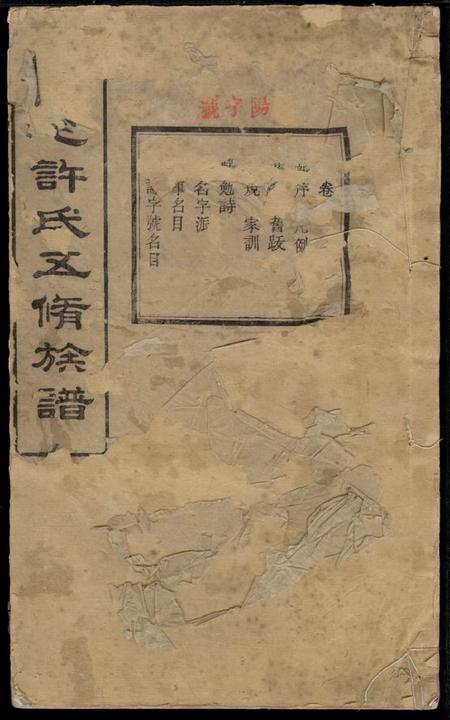 許氏五脩族譜
陽字號
卷
序 凡例
舊跋
規 家訓
勉詩
名字派
名目
字號名目